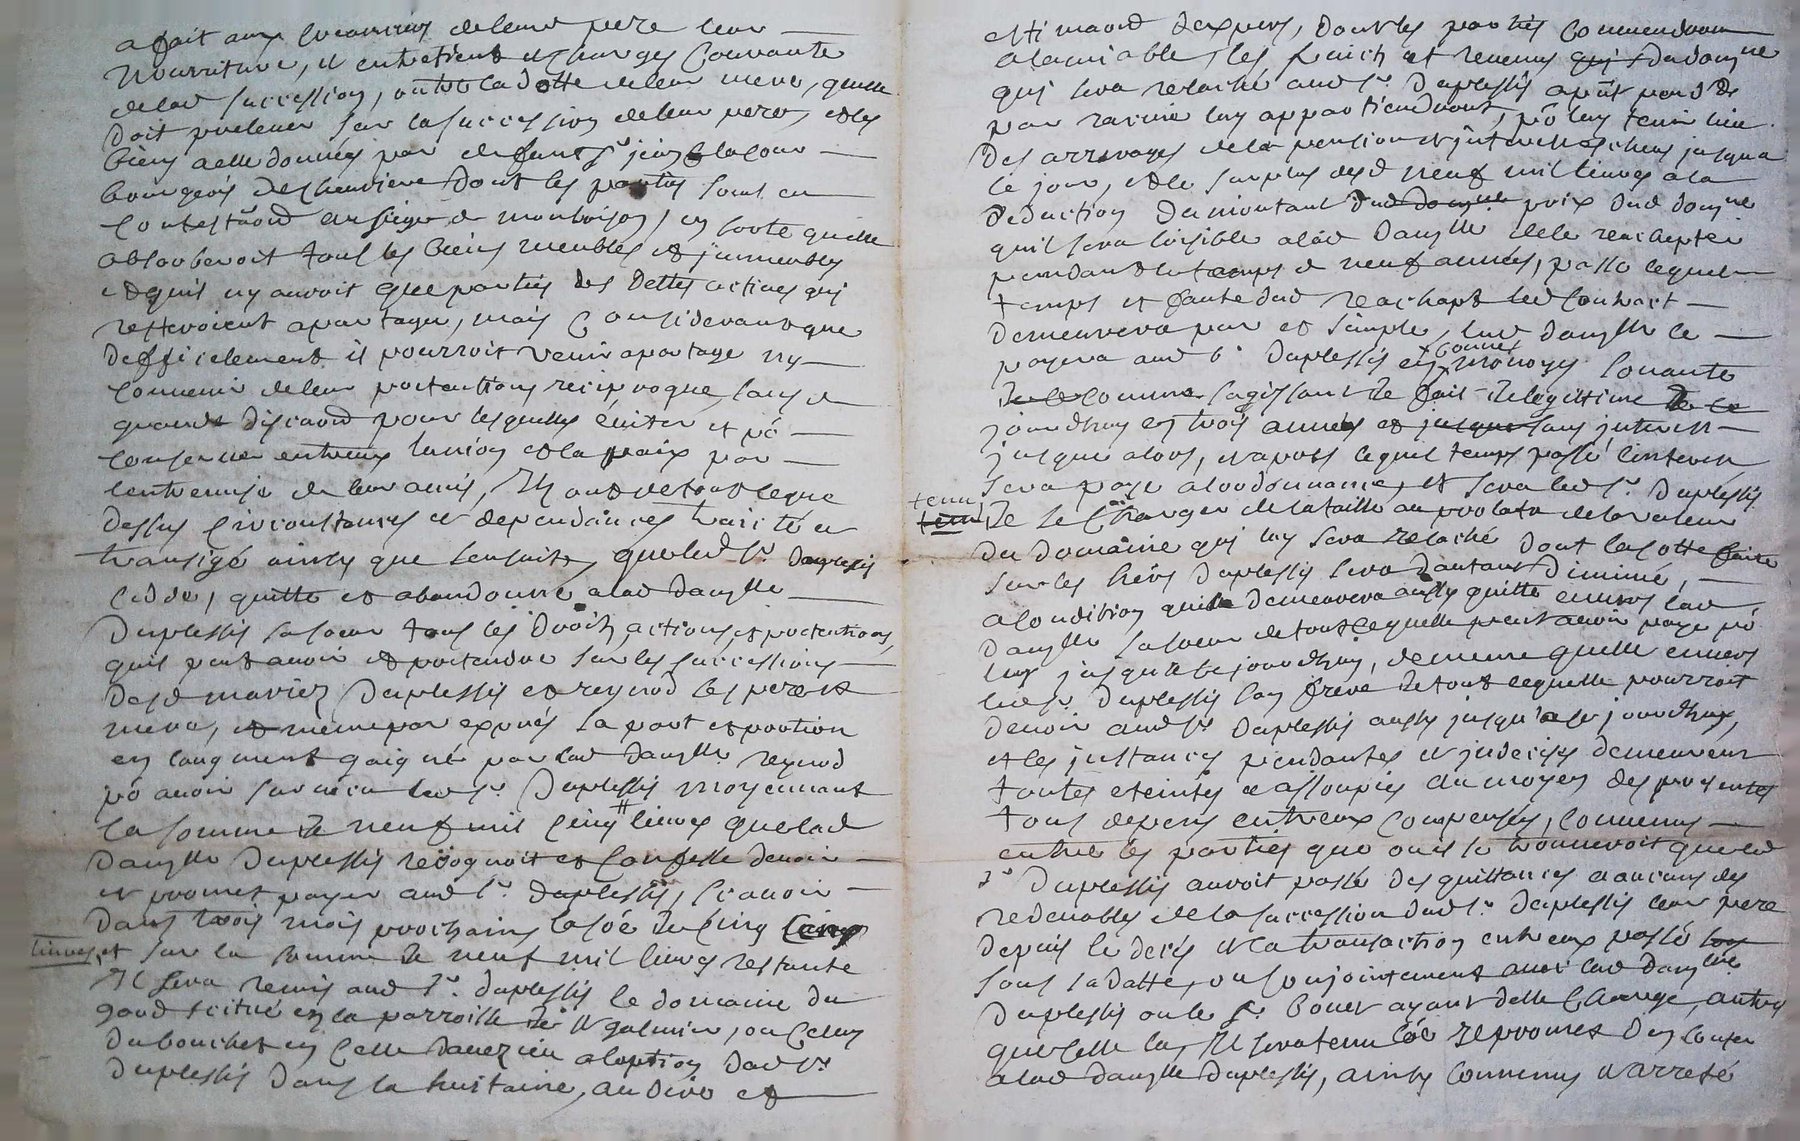 a fait aux creanciers de leur pere leur
nourriture, et entretient et charges courante
de lad succession, outre la dotte de leur mere, quelle
doit prelever sur la succession de leur pere, et les
biens a elle donnés par deffunt Sr
bourgeois de dont les parties sont en
en sorte quelle
absorberoit tous les biens meubles et jmmeubles
et quil ny auroit que parties des dettes actives qui
resteroient a partager, mais considerant que
difficilement il pourroit venir a partage ny
convenir de leur pretentions reciproque sans de
grands discord pour lesquelles éviter et pō
conserver entreux lunion et la paix par
lentremise de leur amis, Ils ont de tout le que
dessus circonstances et dependances traicté et
transigé ainsy que sensuit, que led Sr Duplessis
cedde, quitte et abandonne a lad dauzlle
Duplessis sa soeur tous les droits, actions et pretentions
quil peut avoir et pretendre sur les successions
desd mariez Duplessis et reynod les pere et
mere, et mesme par exprés sa part et portion
en laugment gaigné par lad dauzlle reynod
pō avoir survecu led Sr Duplessis moyennant
la somme de neuf mil cinq livres que lad
dauzlle Duplessis recognoit et confesse devoir
et promet payer aud Sr Duplessis, scavoir
dans trois mois prochains la sōe de cinq cens
livres, et sur la somme de neuf mil livres restante
Il sera remis aud Sr. Duplessis le domaine du
scitué en la parroisse de St galmier, ou celluy
du bouchet en celle a loption dud Sr
Duplessis dans la huitaine, au dire et
estimaōn dexpers, dont les parties conviendront
a lamiable, les fruits et revenus qui du domne
qui sera relaché aud Sr. Duplessis
par racine luy appartiendront, pō luy tenir lieu
des arrerages de la pension et jnterests jusqua
ce jour, et le surplus desd neuf mil livres a la
deduction du montant dud domne prix dud domne
quil sera loisible a lad dauzlle de le reachepter
pendant le temps de neuf années, passé lequel
temps et faute dud reachapt led contract
demeurera pur et simple, lad dauzlle le
payera aud Sr Duplessis en bonne monoye
comme sagissant de fait de legittime de ce
jourdhuy en trois années et jusque sans jnterest
jusque alors, et apres lequel temps passé linterest
sera payé a lordonnance, et sera led Sr. Duplessis
tenu de se charger de la taille au prolata de la valeur
du domaine qui luy sera relaché dont la cotte faite
sur les hers Duplessis sera dautant diminué,
a condition quil demeurera aussy quitte envers lad
dauzlle sa soeur de tout ce quelle peut avoir payé pō
luy jusqu'a ce jourdhuy, de meme quelle envers
led Sr. Duplessis son frere de tout ce quelle pourroit
devoir aud Sr. Duplessis aussy jusqu'a ce jourdhuy,
et les jnstances pendantes et jndecises demeurent
toutes eteintes et assoupies au moyen des presentes
tous depens entreux compensés, convenus
entre les parties que ou il se trouveroit que led
Sr Duplessis auroit passé des quittances a aucuns des
redevables de la succession dud Sr. Duplessis leur pere
depuis le deces et la transaction entreux passé
sous sa datte, ou conjointement avec lad dauzlle
Duplessis ou le Sr. ayant delle charge, autres
que celle la, Il sera tenu
a lad dauzlle Duplessis, ainsy convenus et arresté